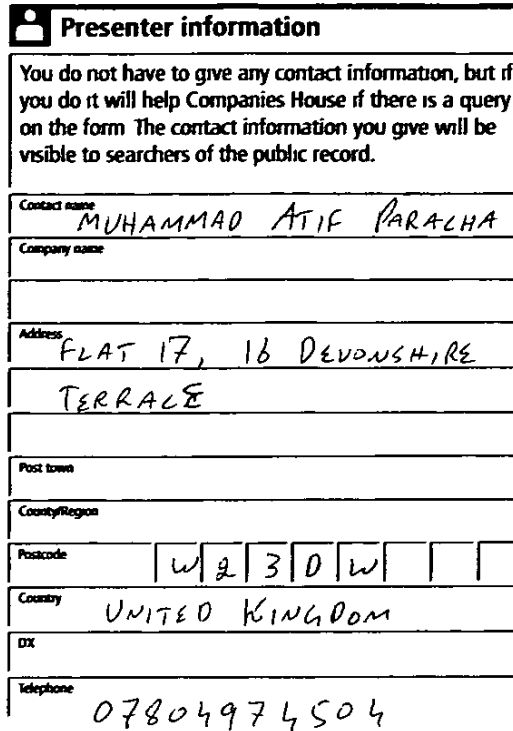 Presenter information
You do not have to give any contact information, but if
you do it will help Companies House if there is a query
on the form The contact information you give will be
visible to searchers of the public record.
Contact name
MUHAMMAD ATIF PARACHA
Company name
Address
FLAT 17, 16 DEVONSHIRE
TERRACE
Post town
County/Region
Postcode
W2 3DW
Country
UNITED KINGDOM
DX
Telephone
07804974504